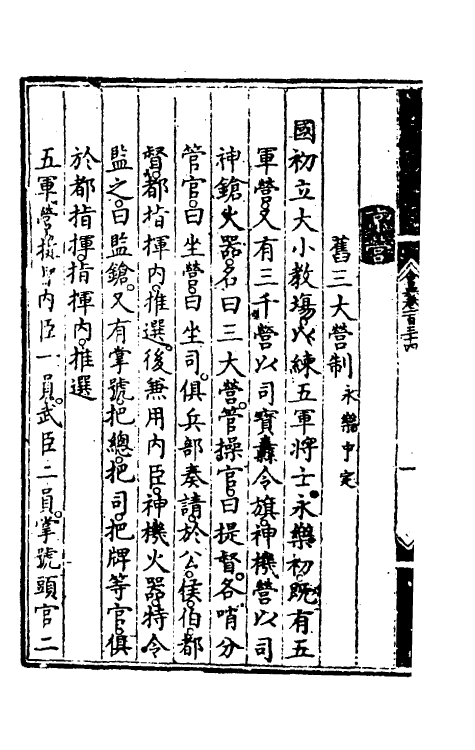 京營
舊三大營制永樂中定
國初立大小教場以練五軍將士永樂初既有五
軍營又有三千營以司寶纛令旗神機營以司
神鎗火器名曰三大營管操官曰提督各哨分
管官曰坐營曰坐司俱兵部奏請於公侯伯都
督都指揮內推選後兼用內臣神機火器特令
監之曰監鎗又有掌號把總把司把牌等官俱
於都指揮指揮內推選
五軍營提督內臣一員武臣二員掌號頭官二
會典卷一百三十四
一